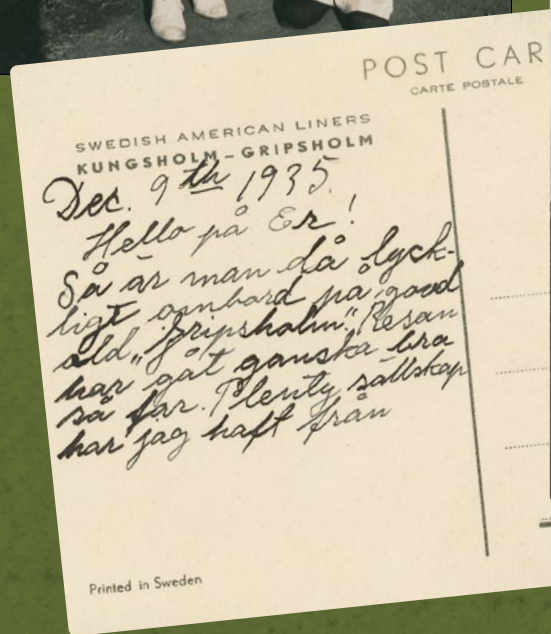 POST CAR
CARTE POSTALE
SWEDISH AMERICAN LINERS
KUNGSHOLM – GRIPSHOLM
Dec. 9th 1935.
Hello på Er!
Så är man då lyck-
ligt ombord på good
old „Gripsholm". Resan
har gåt ganska bra
så far. Plenty sällskap
har jag haft från
Printed in Sweden